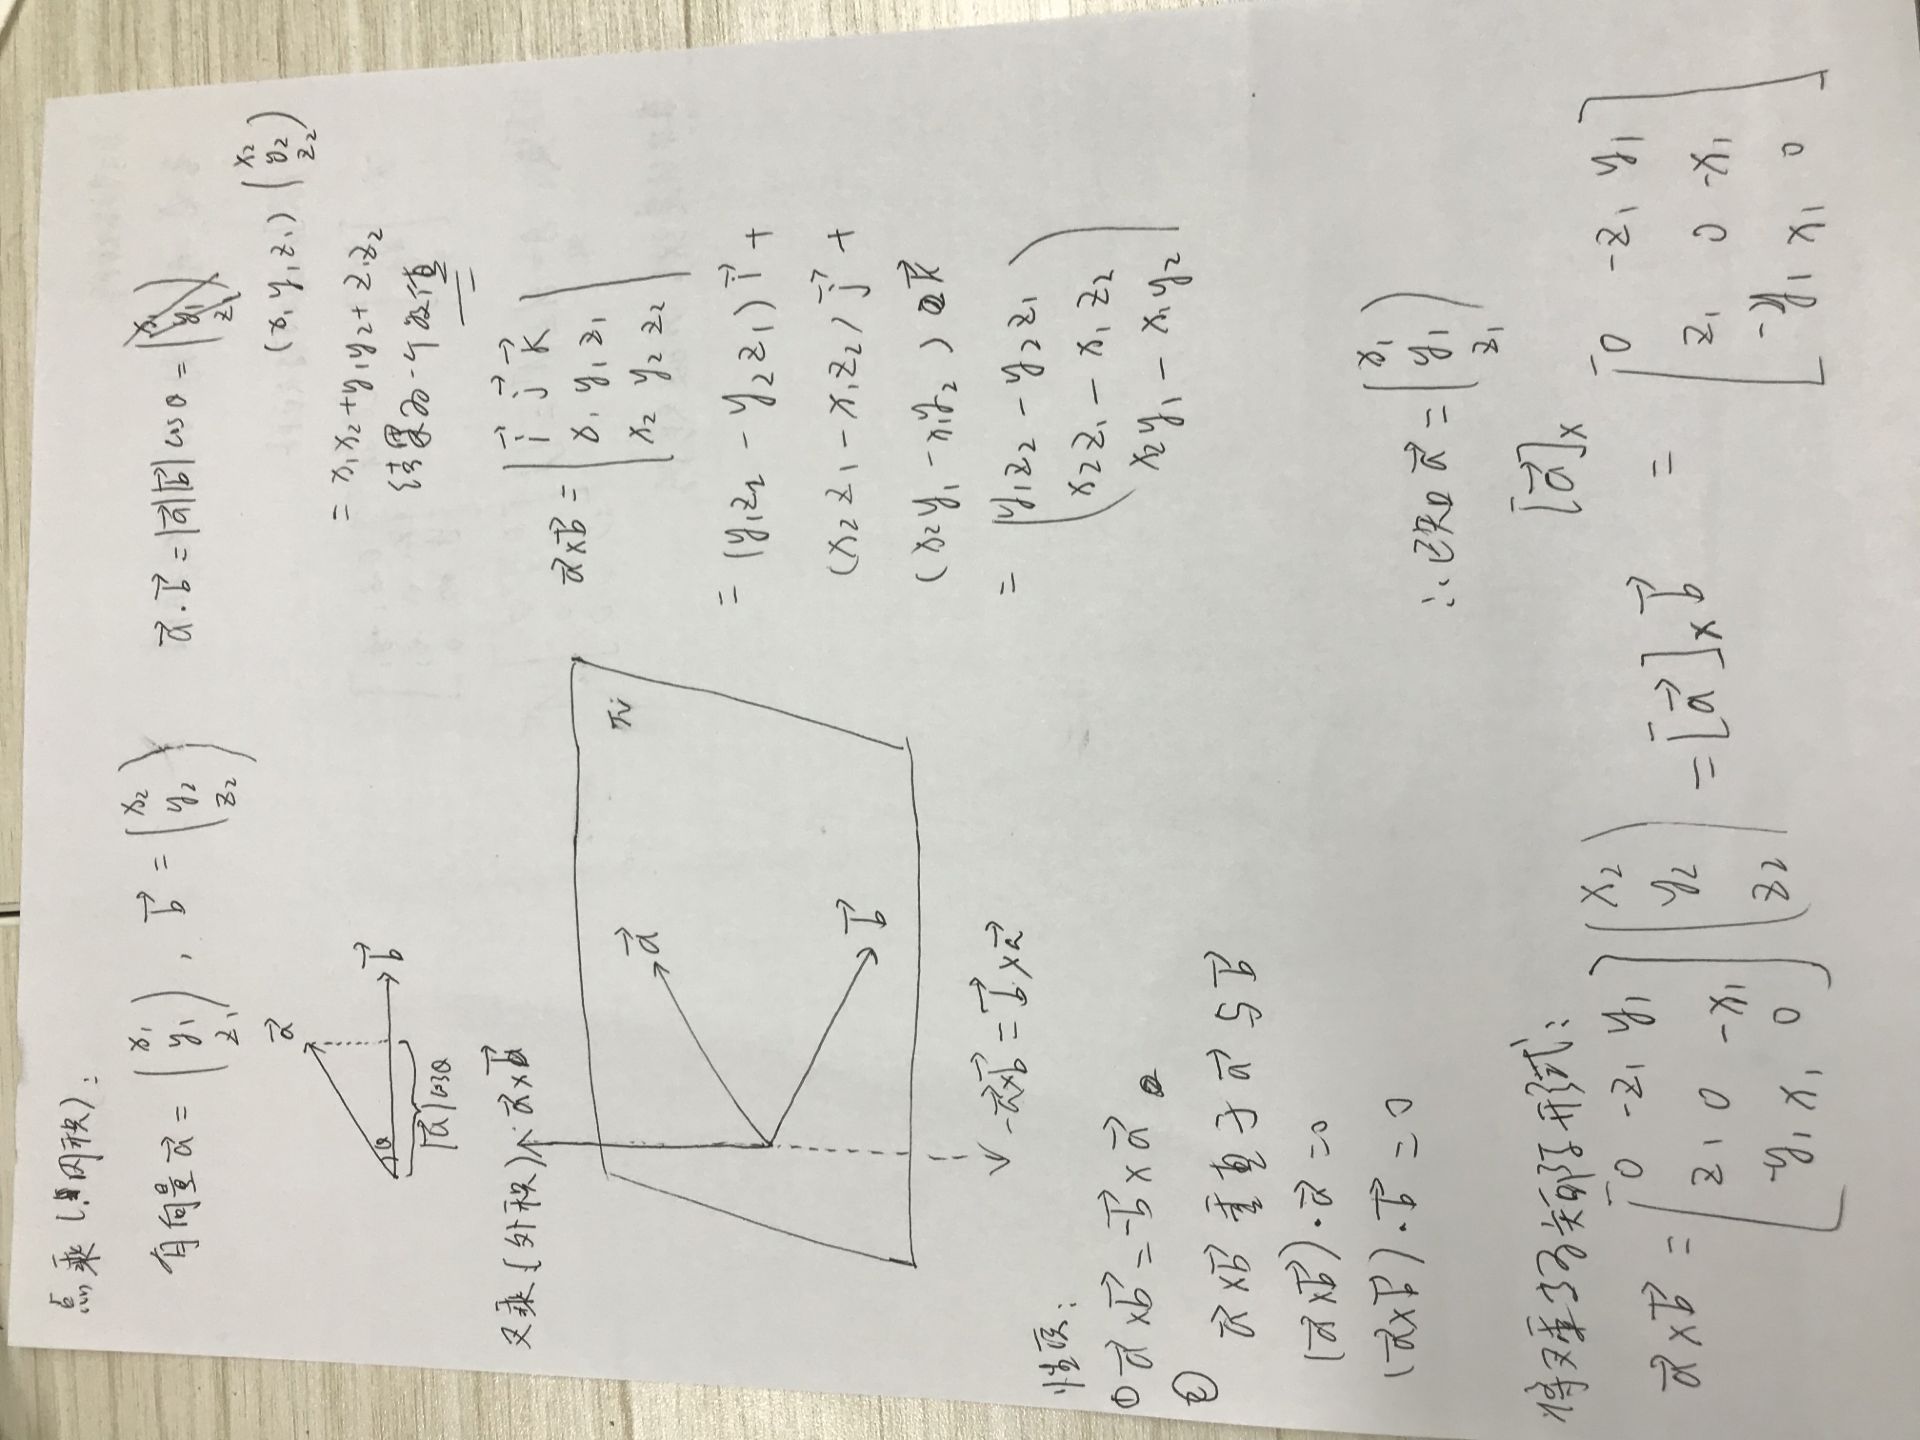 点乘(内积):
有向量 a⃗ = (x₁ y₁ z₁), b⃗ = (x₂ y₂ z₂)
a⃗·b⃗ = |a⃗||b⃗| cosθ =
(x₁ y₁ z₁) (x₂ y₂ z₂)
= x₁x₂+y₁y₂+z₁z₂
结果为一个数值
a⃗
θ
b⃗
|a⃗|cosθ
叉乘(外积)
a⃗×b⃗
a⃗
π
b⃗
-a⃗×b⃗ = b⃗×a⃗
a⃗×b⃗ = | i⃗ j⃗ k⃗ |
| x₁ y₁ z₁ |
| x₂ y₂ z₂ |
= (y₁z₂ - y₂z₁) i⃗ +
(x₂z₁ - x₁z₂) j⃗ +
(x₂y₁ - x₁y₂) k⃗
= (y₁z₂ - y₂z₁
x₂z₁ - x₁z₂
x₂y₁ - x₁y₂)
性质:
① a⃗×b⃗ = -b⃗×a⃗
②
a⃗×b⃗ 垂直于 a⃗ 与 b⃗
(a⃗×b⃗)·a⃗ = 0
(a⃗×b⃗)·b⃗ = 0
将叉乘写为矩阵形式:
a⃗×b⃗ = [0 -z₁ y₁
z₁ 0 -x₁
-y₁ x₁ 0] (x₂ y₂ z₂) = [a⃗]ₓ b⃗
∴已知 a⃗ = (x₁ y₁ z₁)
[a⃗]ₓ
= [0 -z₁ y₁
z₁ 0 -x₁
-y₁ x₁ 0]